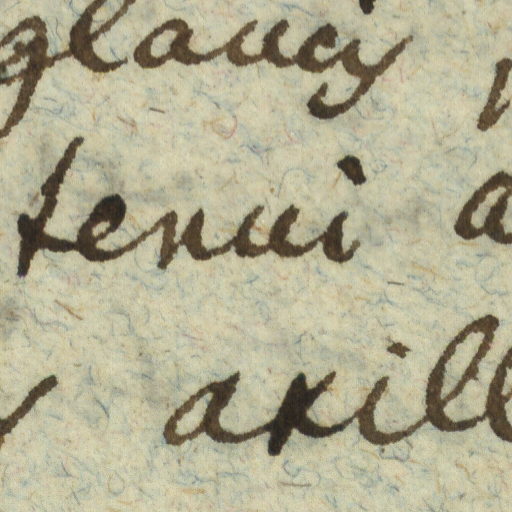 glaucis
tenui a
axill